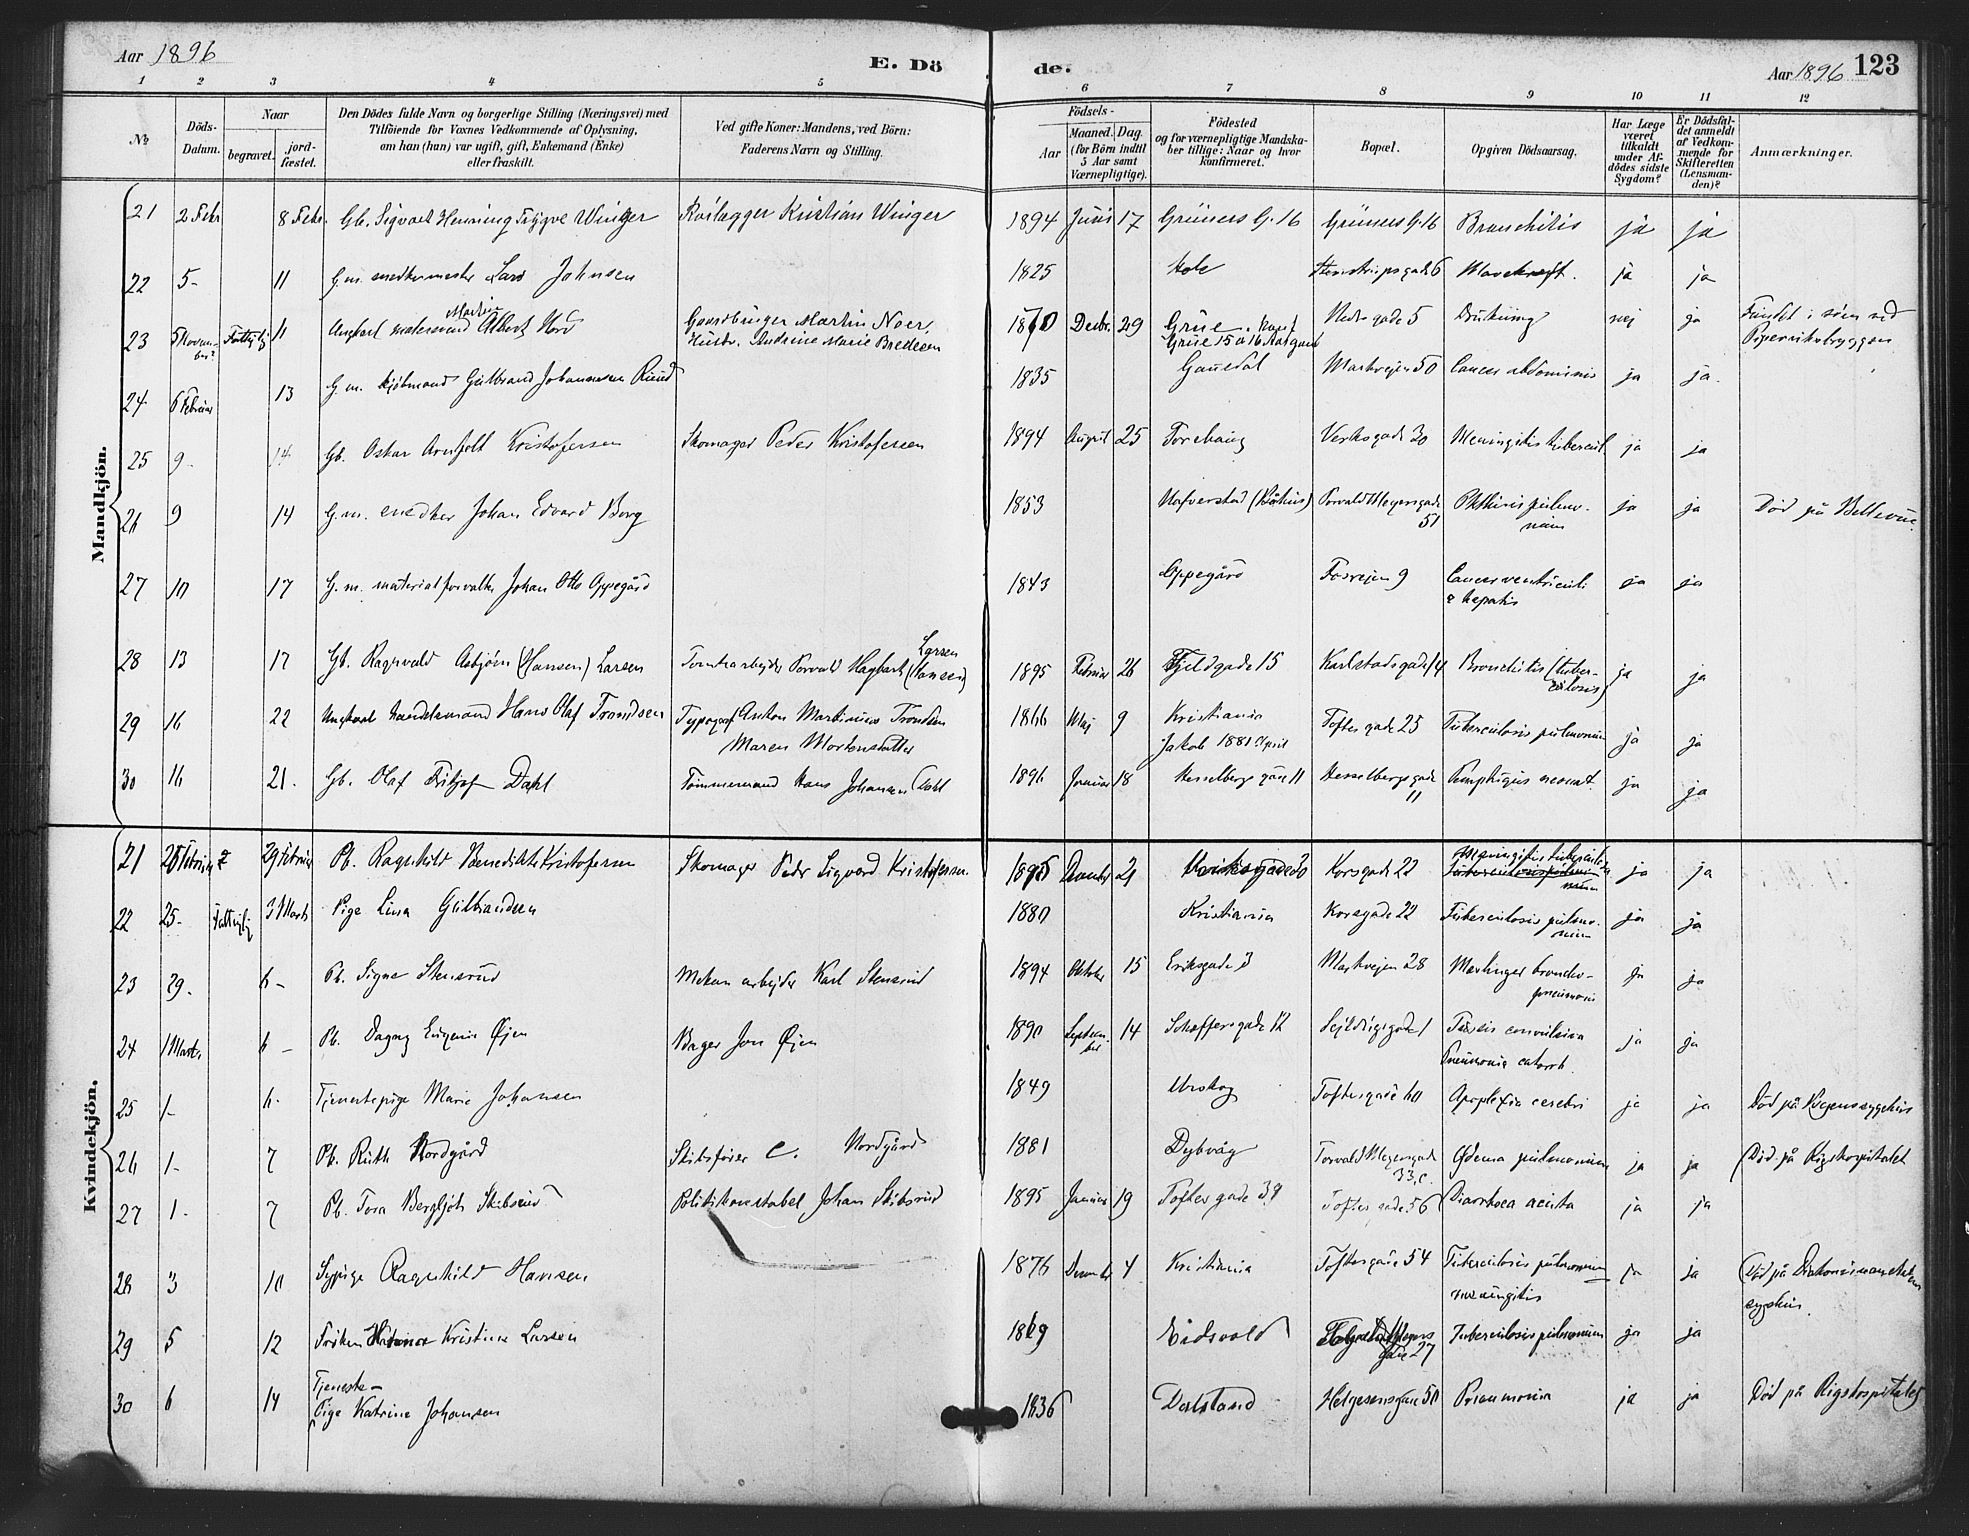 Aar 1896
E. Dö
de.
Aar 1896 123
1 2 3 4 5 6 7 8 9 10 11 12
No
Döds-Datum.
Naar
begravet.
jord-fæstet.
Den Dödes fulde Navn og borgerlige Stilling (Næringsvei) med
Tilföiende for Voxnes Vedkommende af Oplysning,
om han (hun) var ugift, gift, Enkemand (Enke)
eller fraskilt.
Ved gifte Koner: Mandens, ved Börn:
Faderens Navn og Stilling.
Födsels-
Aar
Maaned. Dag.
(for Börn indtil
5 Aar samt
Værnepligtige).
Födested
og for værnepligtige Mandska-
ber tillige: Naar og hvor
konfirmeret.
Bopæl.
Opgiven Dödsaarsag.
Har Læge
været
tilkaldt
under Af-
dödes sidste
Sygdom?
Er Dödsfal-
det anmeldt
af Vedkom-
mende for
Skifteretten
(Lensman-
den)?
Anmærkninger.
Mandkjön.
21 2 Febr 8 Febr. Gb. Sigvart Henning Trygve Winger Kristian Winger 1894 Juni 17 Grüners G. 16 Grüners G. 16 Bronchitis ja ja
22 5- 11 G.m. snedkermester Lars Johnsen 1825 Hole 6 Mavekræft. ja ja
23 Fattiglig 11 Ungkarl matersvend Martin Albert Nord Gaardbruger Martin Noer, Hustr. Andrine Marie Bredesen 1870 Decbr. 29 Grue. Konf. Grue 15 a 16 Aar gam Nedre gade 5 Drukning nej ja Fundet i søen ved Pipervikabryggen
24 6 Februar 13 G.m. kjøbmand Gulbrand Johannesen Ruud 1835 Gausdal Markvejen 50 Cancer abdominis ja ja.
25 9- 14 Gb. Oskar Arnfelt Kristofersen Skomager Peder Kristofersen 1894 August 25 Torshaug Verksgade 30 Meningitis tubercul. ja ja
26 9 14 G.m. snedker Johan Edvard Borg 1853 Nafverstad (Båhus) Torvald Meyersgade 51 Phthisis pulmonum ja ja Død på Bellevue.
27 10 17 G.m. materialforvalter Johan Otto Oppegård 1843 Oppegård Fosvejen 9 Cancer ventriculi & hepatis ja ja
28 13 17 Gb. Ragnvald Asbjørn (Hansen) Larsen Tomtearbejder Torvald Hagbart Larsen (Hansen) 1895 Februar 26 Fjeldgade 15 Karlstadsgade 14 Bronchitis (tuberculosis) ja ja
29 16 22 Ungkarl handelsmand Hans Olaf Trondsen Typograf Anton Martinius Trondsen Maren Mortensdatter 1866 Maj 9 Kristiania Jakob 1881 April Toftes gade 25 Tuberculosis pulmonum ja ja
30 16 21. Gb. Olaf Fritjof Dahl Tømmermand Hans Johansen Dahl 1896 Januar 18 Hesselbergs gade 11 Hesselbergs gade 11 Pemphigus neonat. ja ja
Kvindekjön.
21 Februar 29 Februar Pb. Ragnhild Benedikte Kristofersen Skomager Peder Sigvard Kristofersen. 1895 21 Korsgade 22 Meningitis tuberculosa ja ja
22 25- Fattiglig 3 Marts Pige Lina Gulbrandsen 1880 Kristiania Korsgade 22 Tuberculosis pulmonum ja ja
23 29. 6- Pb. Signe Stensrud Mekan arbejder Karl Stensrud 1894 Oktober 15 Eriksgade 3 Markvejen 28 Mæslinger broncho-pneumoni ja ja
24 1 Marts 6- Pb. Dagny Eugenie Øjen Bager Jon Øjen 1890 September 14 Schøffersgade 12 Sejldugsgade 1 Tussis convulsiva Pneumonia catarrh. ja ja
25 1- 6- Tjenestepige Marie Johansen 1849 Urskog Toftesgade 60 Apoplexia cerebri ja ja Død på Krogens sygehus
26 1- 7 Pb. Ruth Nordgård Skibsfører C. Nordgård 1881 Dybvåg Torvald Meyersgade 33, c. Ødema pulmonum ja ja Død på Rigshospitalet
27 1- 7 Pb. Tora Bergljot Skibsrud Politikonstabel Johan Skibsrud 1895 Januar 19 Toftes gade 38 Toftes gade 56 Diarrhoea acuta ja ja
28 3 10 Sypige Ragnhild Hansen 1876 December 4 Kristiania Toftesgade 54 Tuberculosis pulmonum meningitis ja ja Død på Diakonisseanstaltens sygehus.
29 5 12 Frøken Kristine Larsen 1869 Eidsvold Meyers gade 27 Tuberculosis pulmonum ja ja
30 6 14 Tjeneste-Pige Katrine Johansen 1836 Dalsland Helgesensgade 50 Pneumonia ja ja Død på Rigshospitalet